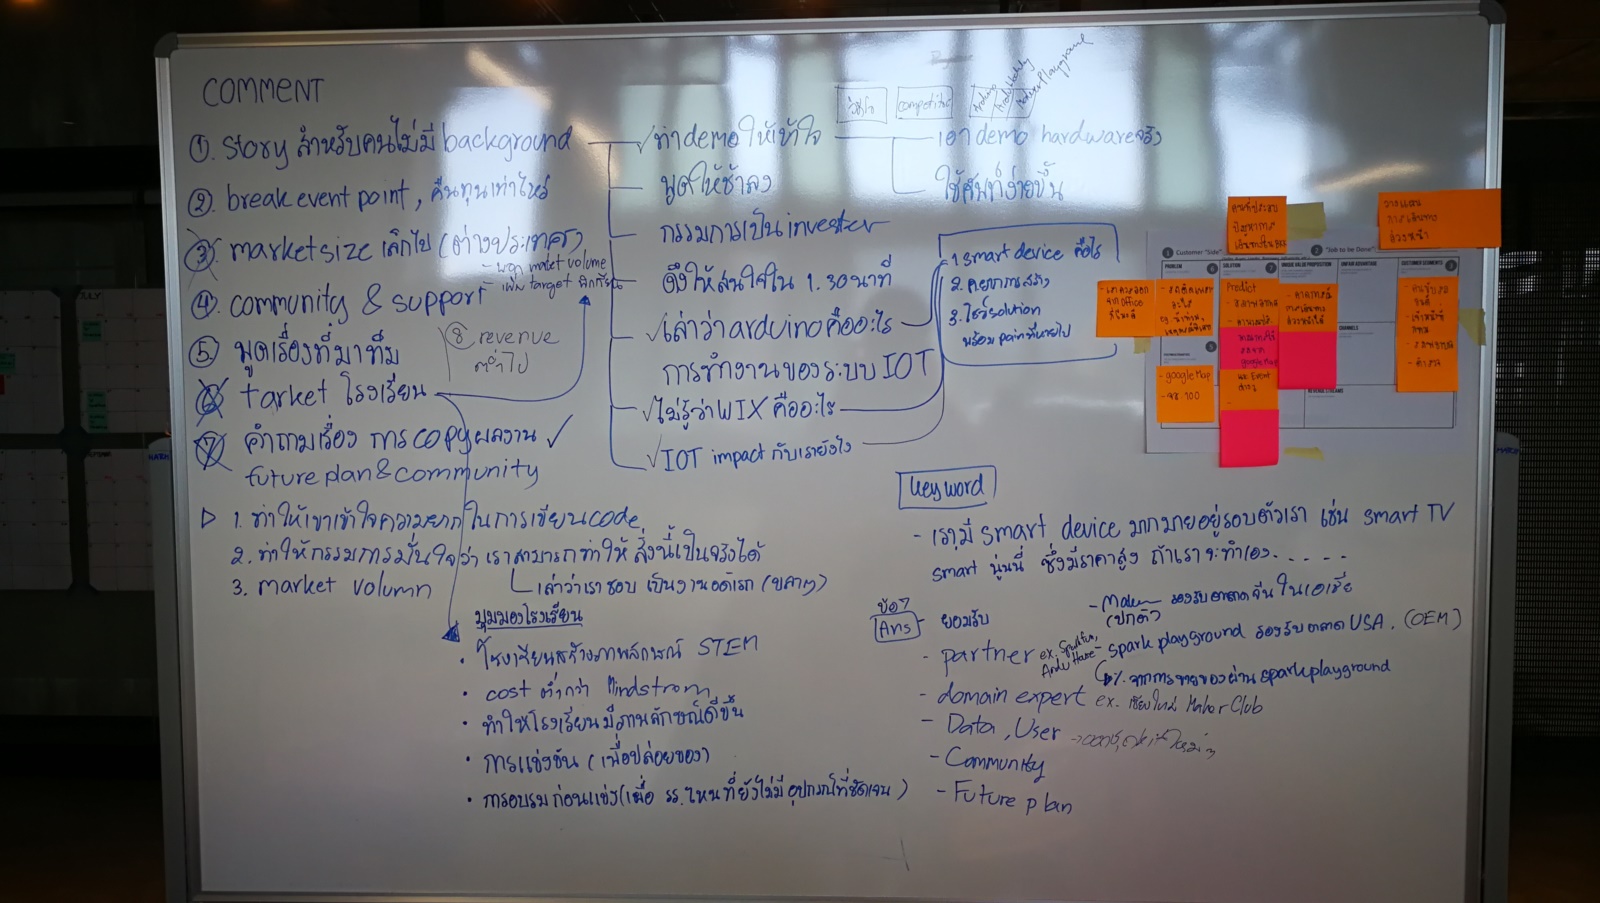 COMMENT
① story สำหรับคนไม่มี background
② break event point, คืนทุนเท่าไหร่
③ market size เล็กไป (ต่างประเทศ)
market volume
เพิ่ม target นักเรียน
④ community & support
⑤ พูดเรื่องที่มาทีม
⑧ revenue
ต่ำไป
⑥ tarket โรงเรียน
⑦ คำถามเรื่อง การ copy ผลงาน ✓
future plan & community
▷ 1. ทำให้เขาเข้าใจความยากในการเขียน code
2. ทำให้กรรมการมั่นใจว่า เราสามารถทำให้ สิ่งนี้เป็นจริงได้
เล่าว่าเราชอบ เป็นงานอดิเรก
3. market volumn
มุมมองโรงเรียน
• โรงเรียนสร้างภาพลักษณ์ STEM
• cost ต่ำกว่า Mindstrom
• ทำให้โรงเรียนมีภาพลักษณ์ดีขึ้น
• การแข่งขัน (เพื่อปล่อยของ)
• การอบรมก่อนแข่ง (เผื่อ รร. ไหนที่ยังไม่มีอุปกรณ์ที่ชัดเจน)
✓ ทำ demo ให้เข้าใจ
เอา demo hardware จริง
ใช้ศัพท์ง่ายขึ้น
พูดให้ช้าลง
กรรมการเป็น investor
ดึงให้สนใจใน 1.30 นาที
✓ เล่าว่า arduino คืออะไร
การทำงานของระบบ IOT
✓ ไม่รู้ว่า WIX คืออะไร
✓ IOT impact กับเรายังไง
competitor
Arduino
1. smart device คืออะไร
2. อยากสร้าง
3. โชว์ solution
พร้อม pain ที่หายไป
keyword
- เรามี smart device มากมายอยู่รอบตัวเรา เช่น smart TV
smart นู่นนี่ ซึ่งมีราคาสูง ถ้าเราจะทำเอง.....
ข้อ 7
Ans
- ยอมรับ
- Maker รองรับตลาดจีนในเอเชีย
(ปกติ)
- partner
- spark playground รองรับตลาด USA. (OEM)
% จากการขายของผ่าน sparkplayground
- domain expert ex. เชียงใหม่ Maker Club
- Data, User
- Community
- Future plan
Customer "Side"
"Job to be Done"
PROBLEM
SOLUTION
UNIQUE VALUE PROPOSITION
UNFAIR ADVANTAGE
CUSTOMER SEGMENTS
CHANNELS
REVENUE STREAMS
Predict
google Map
- google Map
- จส 100
วางแผน
การเดินทาง
ล่วงหน้า
JULY